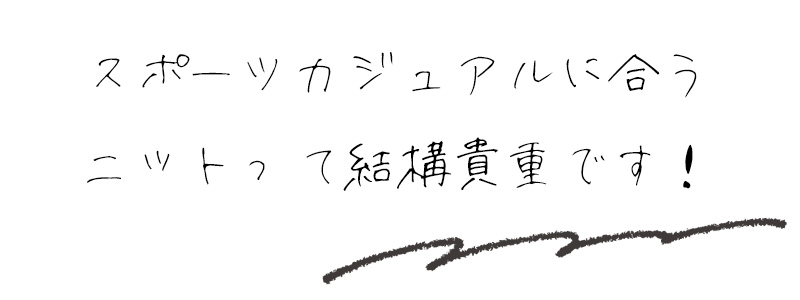 スポーツカジュアルに合う
ニットって結構貴重です！